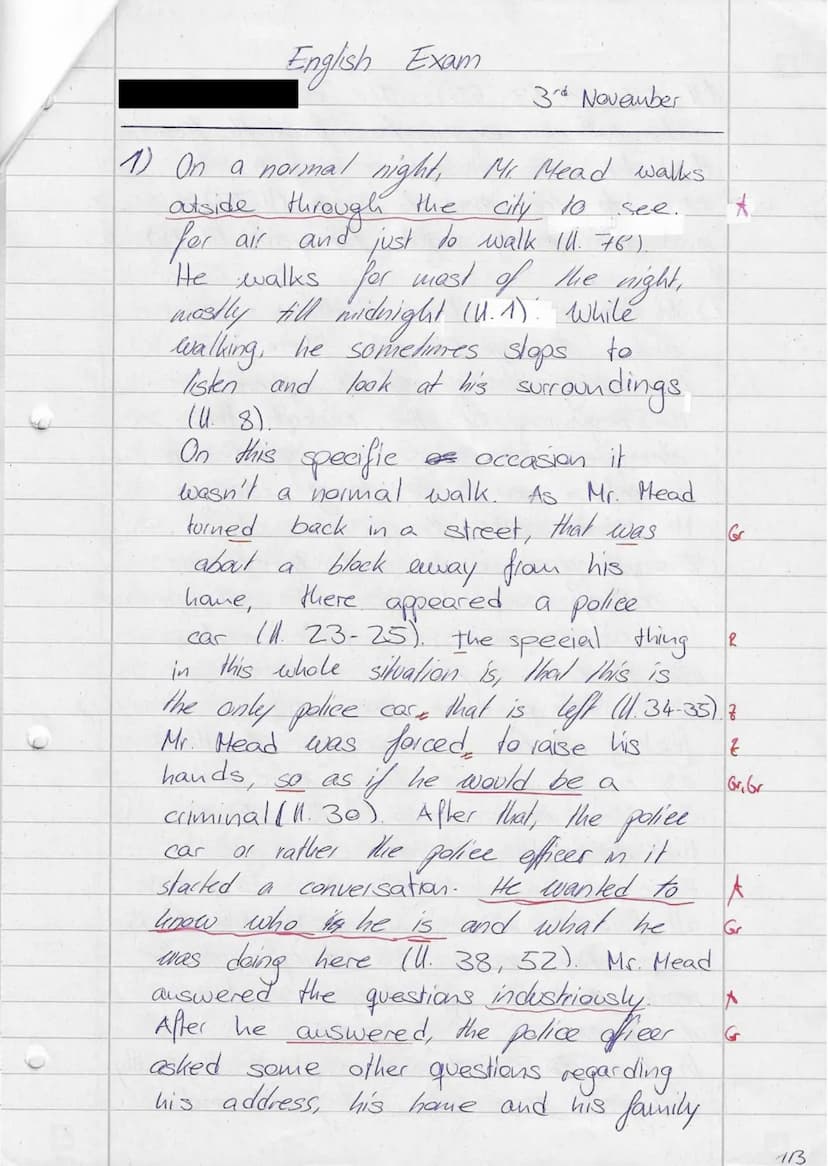 English Exam
3rd November
1) On a normal night, Mr Mead walks
outside through the city to see. A
for air and just to walk (ll. 76).
He walks for most of the night,
mostly till midnight (ll. 1). While
walking, he sometimes stops to
listen and look at his surroundings
(ll. 8).
On this specific occasion it
wasn't a normal walk. As Mr. Mead
turned back in a street, that was Gr
about a block away from his
home, there appeared a police
car (ll. 23-25). the special thing R
in this whole situation is, that this is
the only police car, that is left (ll. 34-35). Z
Mr. Mead was forced, to raise his Z
hands, so as if he would be a Gr, Gr
criminal (ll. 30). After that, the police
car or rather the police officer in it
started a conversation. He wanted to A
know who is he is and what he Gr
was doing here (ll. 38, 52). Mr. Mead
answered the questions industriously. A
After he answered, the police officer G
asked some other questions regarding
his address, his home and his family
1/3